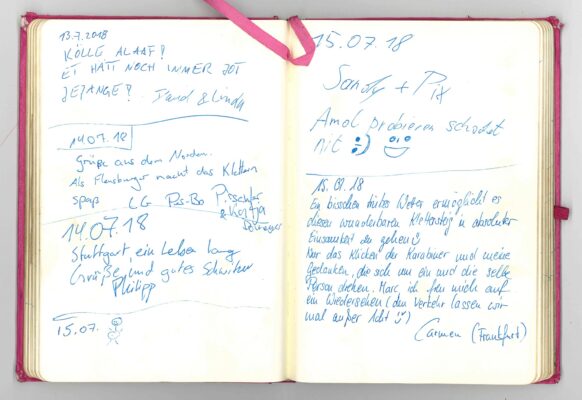 13.7.2018
KÖLLE ALAAF!
ET HATT NOCH IMMER JOT
JEJANGE! & Linda
14.07.18
Grüße aus dem Norden.
Als Flensburger macht das Klettern
spaß LG
& Katja
14.07.18
Stuttgart ein Leben lang
Grüße und gutes Schwitzen
Philipp
15.07.
15.07.18
Sandy + Pit
Amol probieren schodet
nit :)
15.09.18
Ein bisschen trübes Wetter ermöglicht es
diesen wunderbaren Klettersteig in absoluter
Einsamkeit zu gehen
Nur das Klicken der Karabiner und meine
Gedanken, die sich um ein und die selbe
Person drehen. Marc, ich freu mich auf
ein Wiedersehen (den Verkehr lassen wir
mal außer Acht)
Carmen (Frankfurt)